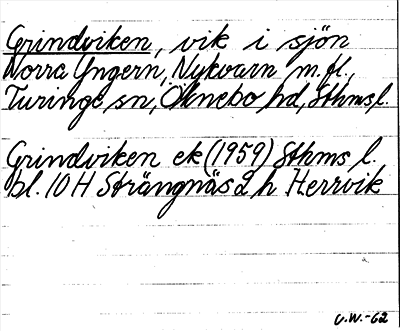 Grindviken, vik i sjön
Norra Yngern, Nykvarn m.fl.,
Turinge sn, Öknebo hd, Sthmsl.
Grindviken ek (1959) Sthms l.
bl. 10 H Strängnäs 2 h Herrvik
G.W.-62